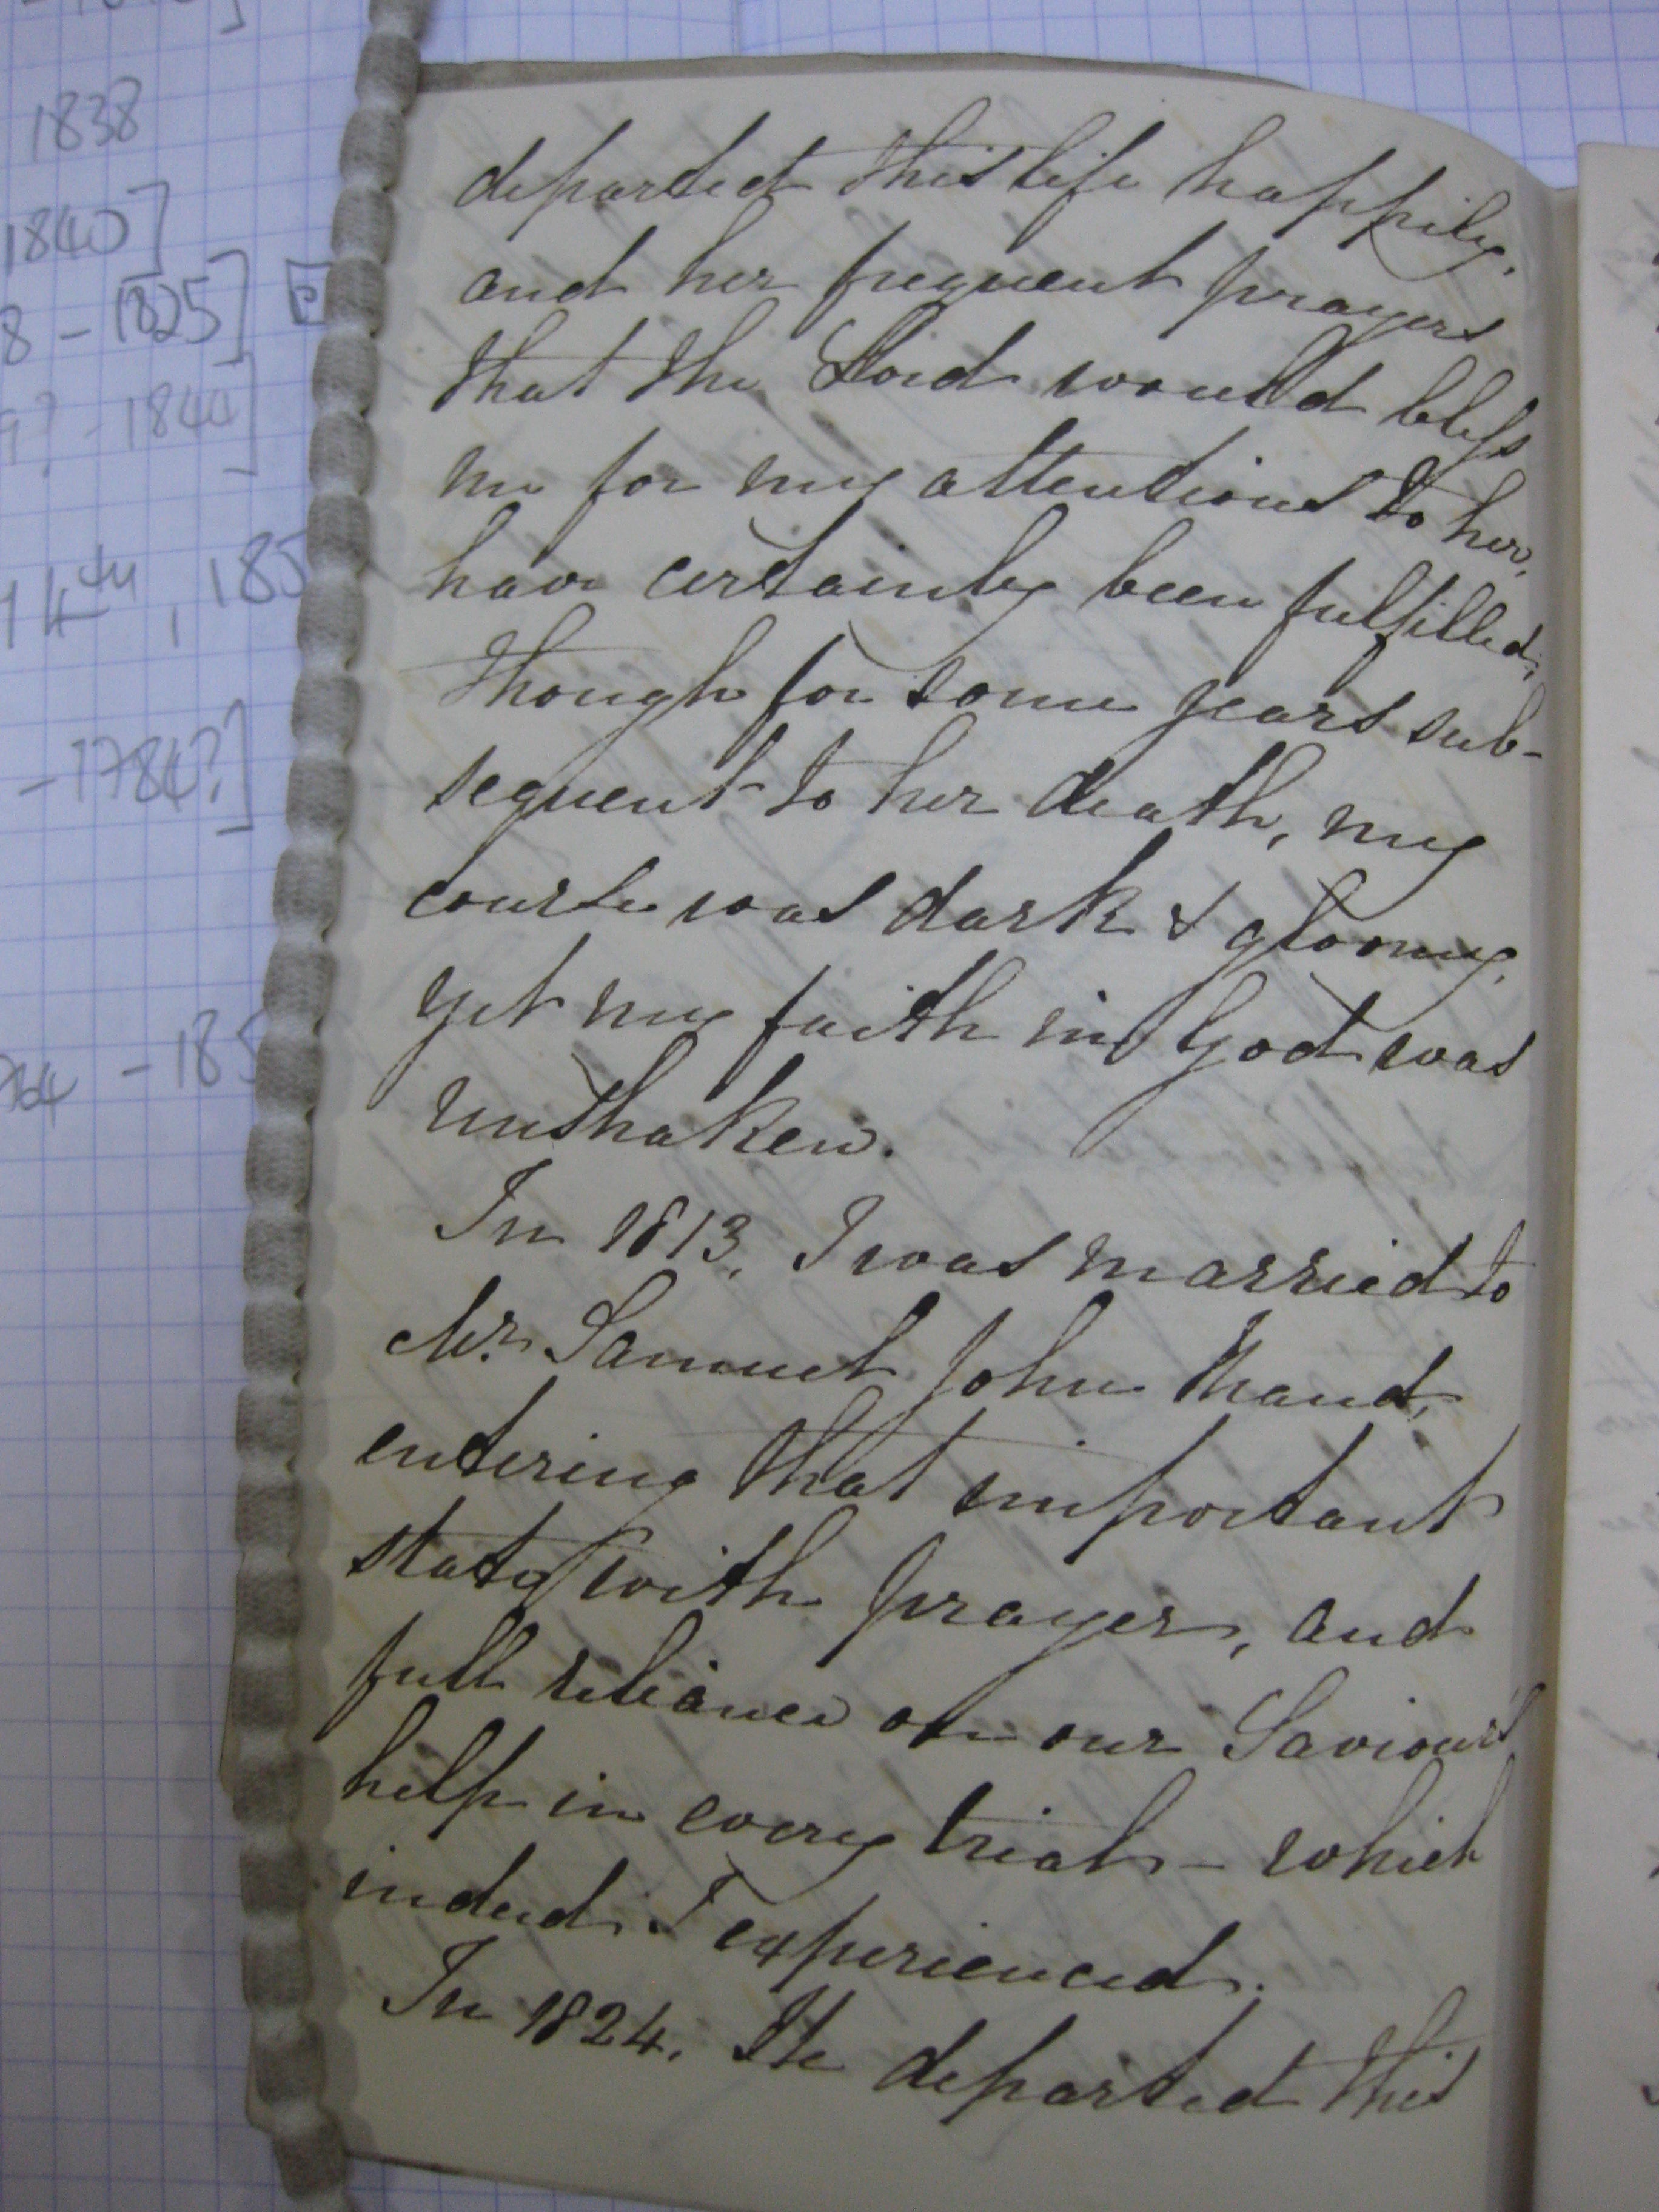 1838
1840]
8 - 1825] P
9? - 1844]
14th, 185
- 1784?]
764 - 185
departed this life happily,
and her frequent prayers
that the Lord would bless
me for my attentions to her,
have certainly been fulfilled;
though for some years sub-
sequent to her death, my
course was dark & gloomy,
yet my faith in God was
unshaken.
In 1813, I was married to
Mr. Samuel John Maud,
entering that important
state with prayer, and
full reliance on our Saviour's
help in every trial - which
indeed I experienced.
In 1824, He departed this